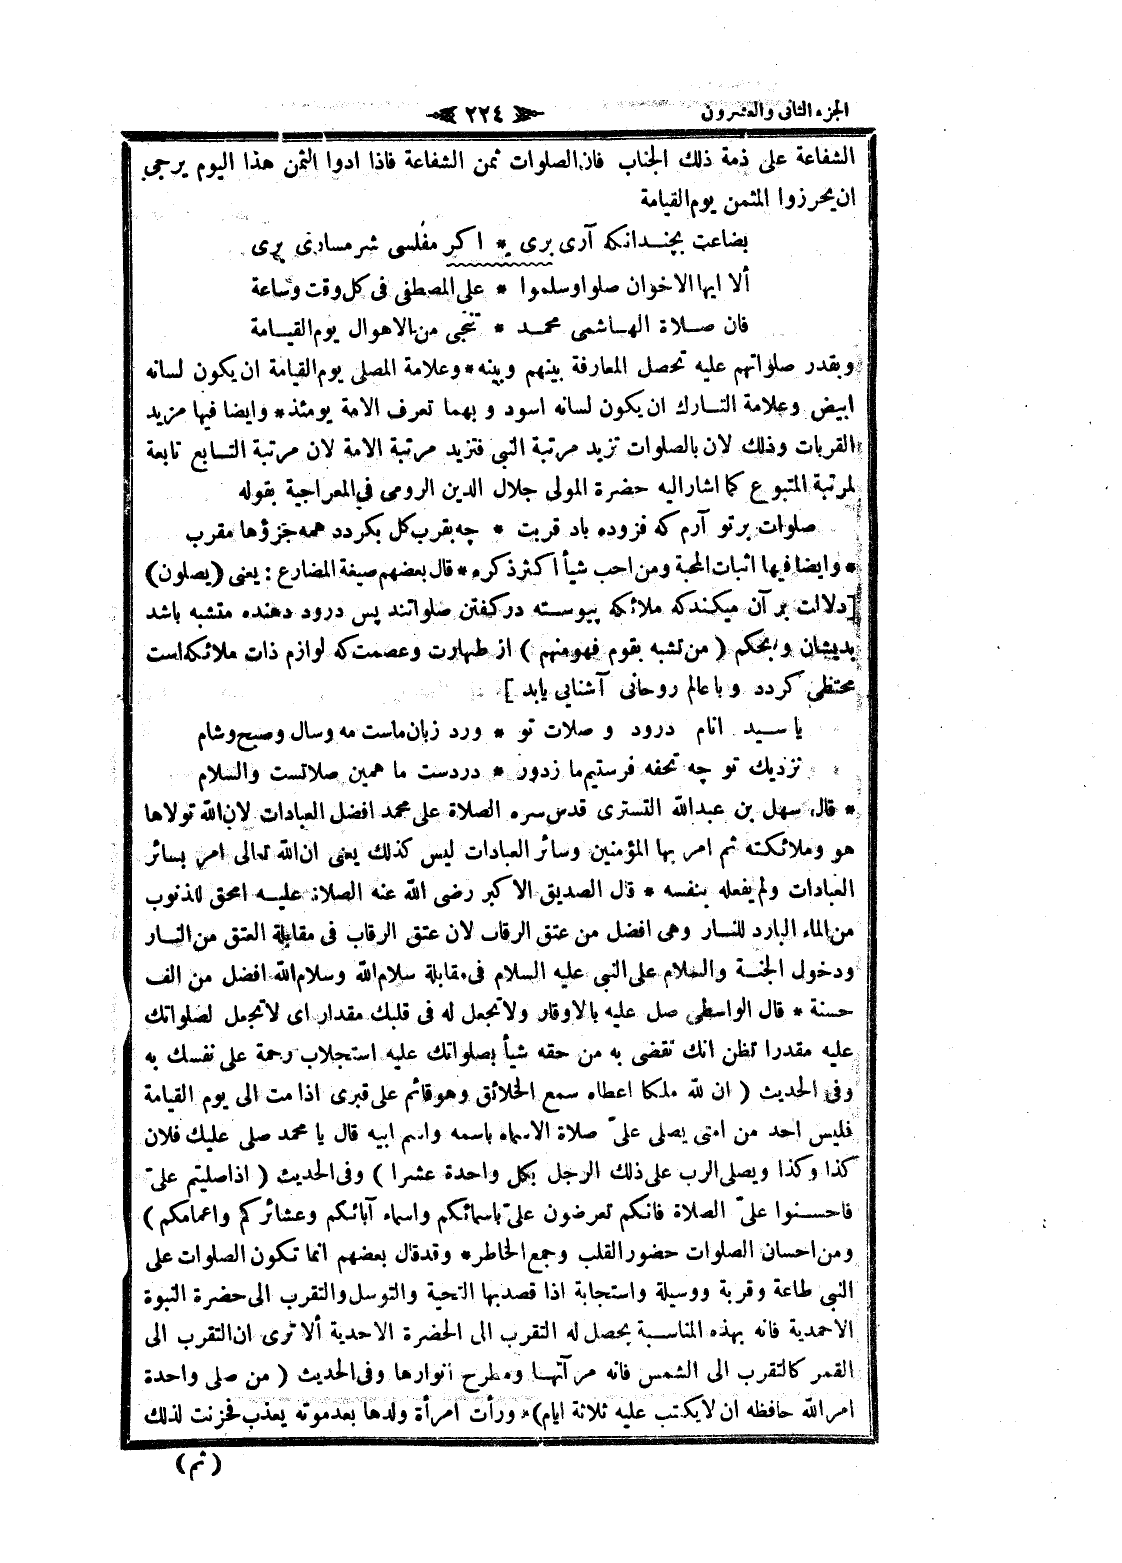 الجزء الثانى والعشرون
٢٢٤
الشفاعة على ذمة ذلك الجناب فان الصلوات ثمن الشفاعة فاذا ادوا الثمن هذا اليوم يرجى
ان يحرزوا المثمن يوم القيامة
بضاعت بچندانكه آرى برى * اكر مفلسى شرمسارى برى
ألا ايها الاخوان صلوا وسلموا * على المصطفى فى كل وقت وساعة
فان صلاة الهاشمى محمد * تنجى من الاهوال يوم القيامة
وبقدر صلواتهم عليه تحصل المعارفة بينهم وبينه * وعلامة المصلى يوم القيامة ان يكون لسانه
ابيض وعلامة التارك ان يكون لسانه اسود و بهما تعرف الامة يومئذ * وايضا فيها مزيد
القربات وذلك لان بالصلوات تزيد مرتبة النبى فتزيد مرتبة الامة لان مرتبة التابع تابعة
لمرتبة المتبوع كما اشار اليه حضرة المولى جلال الدين الرومى فى المعراجية بقوله
صلوات بر تو آرم كه فزوده باد قربت * چه بقرب كل بكردد همه جزؤها مقرب
* وايضا فيها اثبات المحبة ومن احب شيأ اكثر ذكره * قال بعضهم صيغة المضارع : يعنى (يصلون)
[دلالت بر آن ميكند كه ملائكه پيوسته در كفتن صلواتند پس درود دهنده متشبه باشد
بديشان و بحكم ( من تشبه بقوم فهو منهم ) از طهارت وعصمت كه لوازم ذات ملائكه است
محتظى كردد و با عالم روحانى آشنايى يابد ]
يا سيد انام درود و صلات تو * ورد زبان ماست مه وسال وصبح وشام
نزديك تو چه تحفه فرستيم ما زدور * دردست ما همين صلاتست والسلام
* قال سهل بن عبدالله التسترى قدس سره الصلاة على محمد افضل العبادات لان الله تولاها
هو وملائكته ثم امر بها المؤمنين وسائر العبادات ليس كذلك يعنى ان الله تعالى امر بسائر
العبادات ولم يفعله بنفسه * قال الصديق الاكبر رضى الله عنه الصلاة عليه امحق للذنوب
من الماء البارد للنار وهى افضل من عتق الرقاب لان عتق الرقاب فى مقابلة العتق من النار
ودخول الجنة والسلام على النبى عليه السلام فى مقابلة سلام الله وسلام الله افضل من الف
حسنة * قال الواسطى صل عليه بالاوقار ولا تجعل له فى قلبك مقدار اى لا تجعل لصلواتك
عليه مقدرا تظن انك تقضى به من حقه شيأ بصلواتك عليه استجلاب رحمة على نفسك به
وفى الحديث ( ان لله ملكا اعطاه سمع الخلائق وهو قائم على قبرى اذا مت الى يوم القيامة
فليس احد من امتى يصلى علىّ صلاة الا سماه باسمه واسم ابيه قال يا محمد صلى عليك فلان
كذا وكذا ويصلى الرب على ذلك الرجل بكل واحدة عشرا ) وفى الحديث ( اذا صليتم علىّ
فاحسنوا علىّ الصلاة فانكم تعرضون علىّ باسمائكم واسماء آبائكم وعشائركم واعمامكم )
ومن احسان الصلوات حضور القلب وجمع الخاطر * وقد قال بعضهم انما تكون الصلوات على
النبى طاعة وقربة ووسيلة واستجابة اذا قصد بها التحية والتوسل والتقرب الى حضرة النبوة
الاحمدية فانه بهذه المناسبة يحصل له التقرب الى الحضرة الاحدية ألا ترى ان التقرب الى
القمر كالتقرب الى الشمس فانه مرآتها ومطرح انوارها وفى الحديث ( من صلى واحدة
امر الله حافظه ان لا يكتب عليه ثلاثة ايام) * ورأت امرأة ولدها بعد موته يعذب فحزنت لذلك
( ثم )